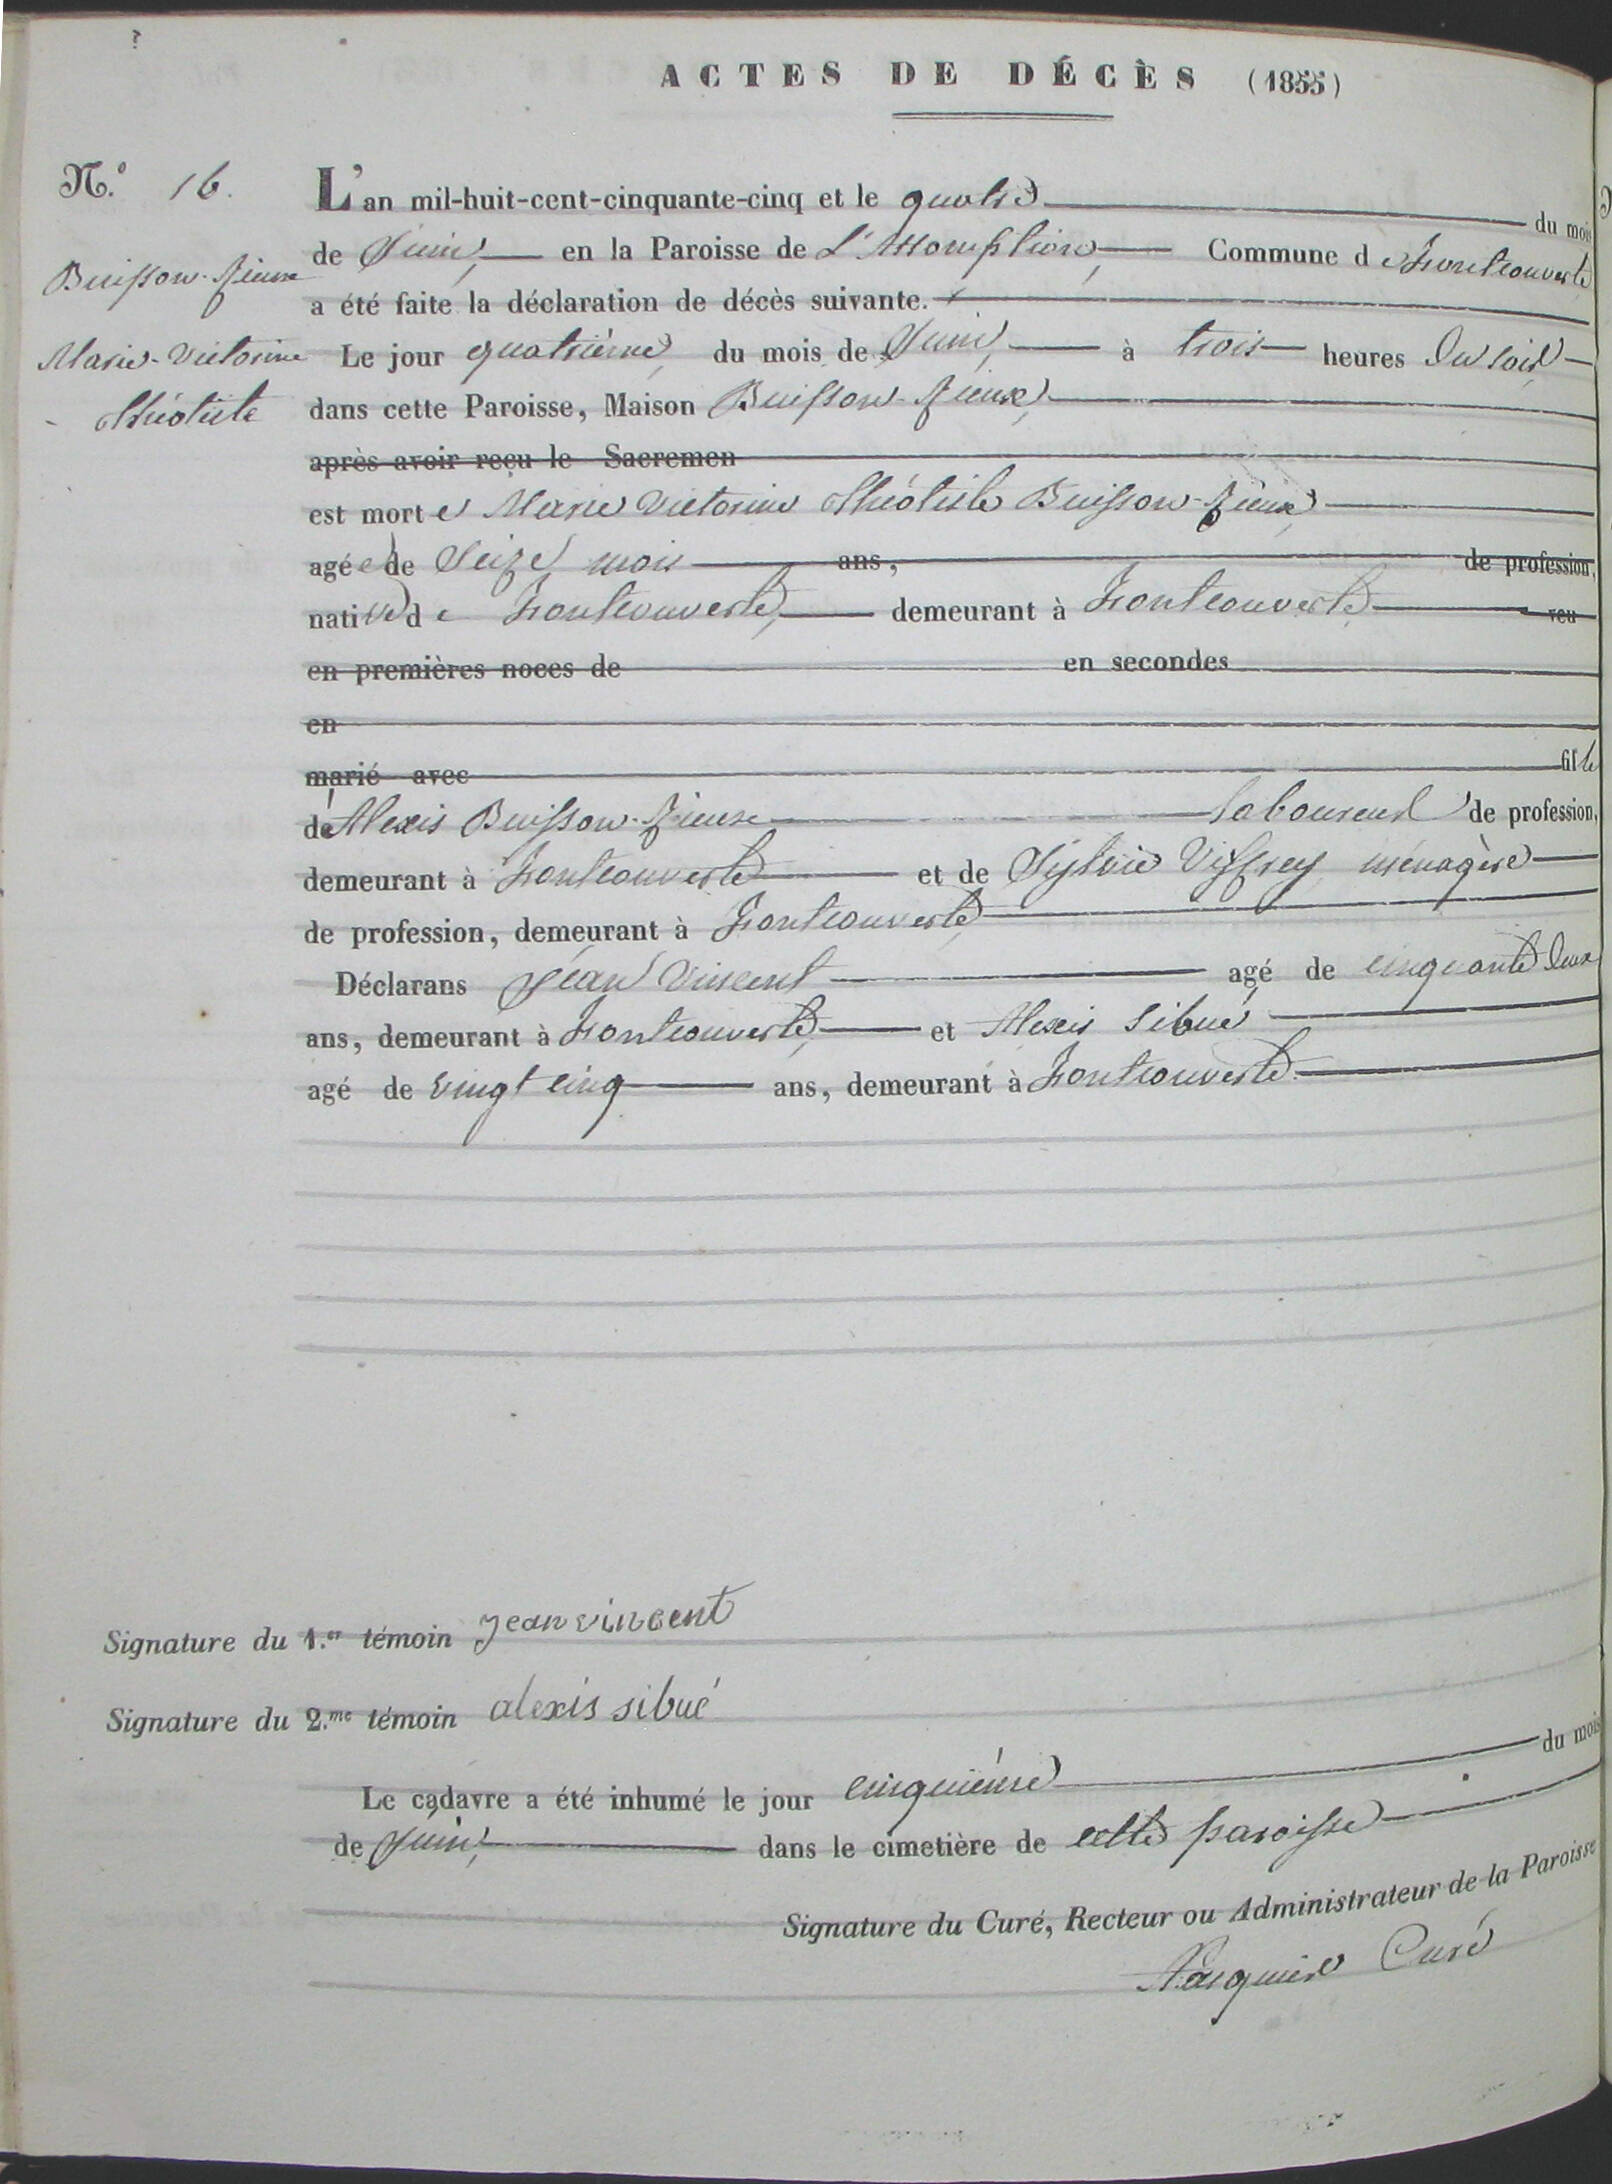 ACTES DE DÉCÈS (1855)
N.º 16.
L'an mil-huit-cent-cinquante-cinq et le quatre du mois
de Juin, en la Paroisse de L'Assomption, Commune de Fontcouverte
Buisson-
a été faite la déclaration de décès suivante.
Marie-Victorine
Le jour quatrième, du mois de Juin, à trois heures du soir
Théotiste
dans cette Paroisse, Maison Buisson-
après avoir reçu le Sacremen
est morte Marie Victorine Théotiste Buisson-
agée de Seize mois ans, de profession,
native de Fontcouverte, demeurant à Fontcouverte veu
en premières noces de en secondes
en
marié avec fille
de Alexis Buisson- laboureur de profession,
demeurant à Fontcouverte et de Sylvie ménagère
de profession, demeurant à Fontcouverte
Déclarans Jean Vincent agé de cinquante deux
ans, demeurant à Fontcouverte, et Alexis Sibué
agé de vingt cinq ans, demeurant à Fontcouverte.
Signature du 1.er témoin jean vincent
Signature du 2.me témoin alexis sibué
Le cadavre a été inhumé le jour cinquième du mois
de Juin, dans le cimetière de cette paroisse
Signature du Curé, Recteur ou Administrateur de la Paroisse
Curé